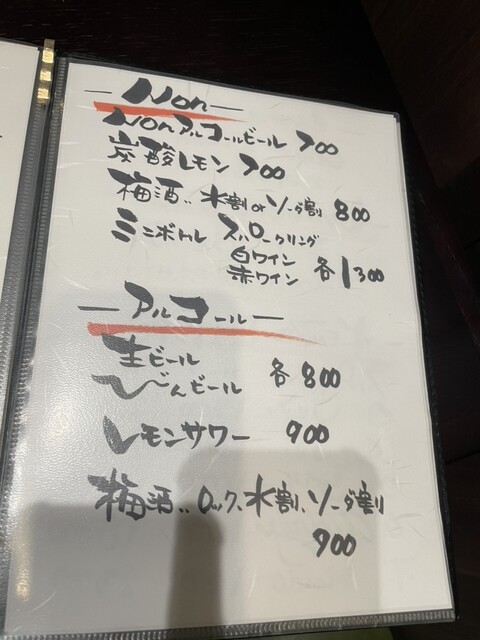 ーNonー
Nonアルコールビール 700
炭酸レモン 700
梅酒‥水割orソーダ割 800
ミニボトル スパークリング
白ワイン
赤ワイン 各1300
ーアルコールー
生ビール
びんビール 各800
レモンサワー 900
梅酒‥ロック、水割、ソーダ割
900